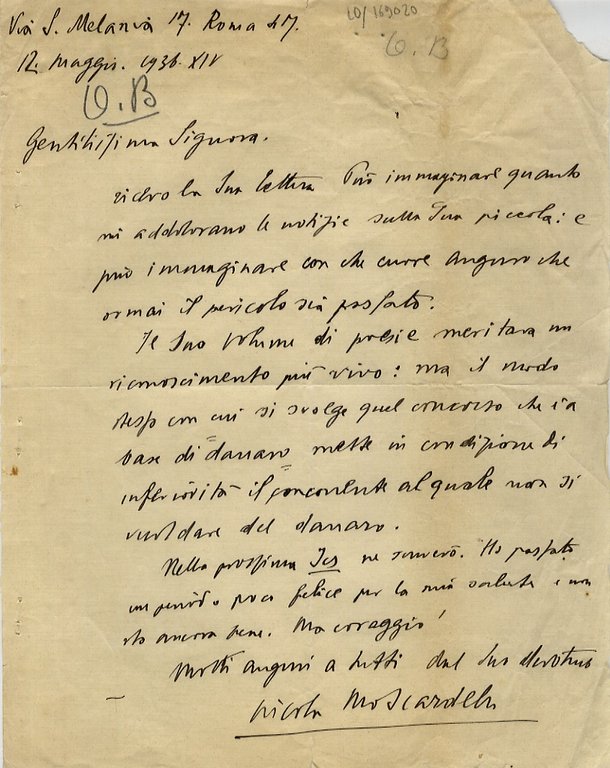 Via S. Melania 17. Roma 47.
LO/169020
O. B
12. maggio. 1936. XIV
O. B
Gentilissima Signora.
ricevo la Sua lettera Può immaginare quanto
mi addolorano le notizie sulla Sua piccola: e
può immaginare con che cuore auguro che
ormai il pericolo sia passato.
Il Suo volume di poesie meritava un
riconoscimento più vivo: ma il modo
stesso con cui si svolge quel concorso che è a
base di danaro mette in condizione di
inferiorità il concorrente al quale non si
vuol dare del danaro.
Nella prossima Ics ne scriverò. Ho passato
un periodo poco felice per la mia salute e non
sto ancora bene. Ma coraggio!
Molti auguri a tutti dal Suo devotmo
Nicola Moscardelli